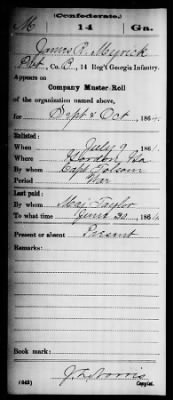 (Confederate.)
M 14 Ga.
James R. Myrick
Pvt, Co. B, 14 Reg't Georgia Infantry.
Appears on
Company Muster Roll
of the organization named above,
for Sept & Oct, 1864.
Enlisted:
When July 9, 1861.
Where Gordon, Ga
By whom Capt Folsom
Period War
Last paid:
By whom Maj. Taylor
To what time June 30, 1864.
Present or absent Present
Remarks:
Book mark:
(642) Copyist.